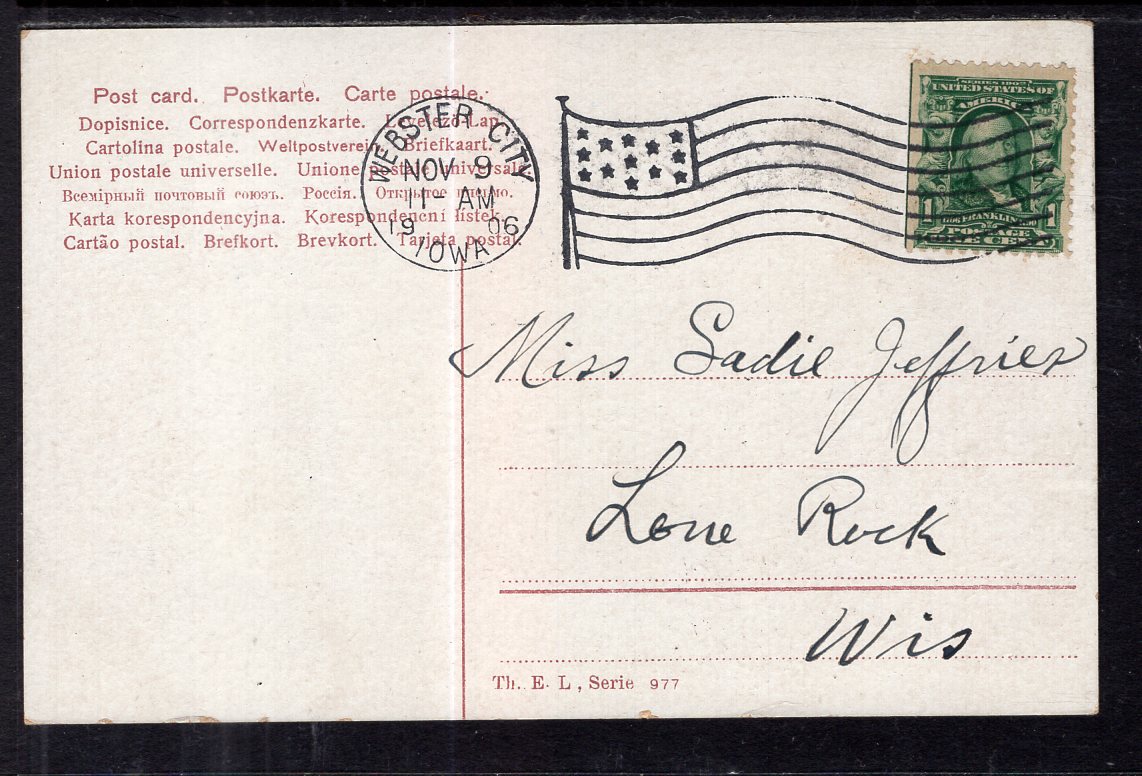 Post card. Postkarte. Carte postale.
Dopisnice. Correspondenzkarte. Levelező-Lap.
Cartolina postale. Weltpostverein. Briefkaart.
Union postale universelle. Unione postale universale.
Всемірный почтовый союзъ. Россія. Открытое письмо.
Karta korespondencyjna. Korespondenční listek.
Cartão postal. Brefkort. Brevkort. Tarjeta postal.
WEBSTER CITY
NOV 9
11-AM
19 06
IOWA
SERIES 1902
UNITED STATES OF
AMERICA
FRANKLIN
1 1
POSTAGE
ONE CENT
Miss Sadie Jeffries
Lone Rock
Wis
Th. E. L, Serie 977